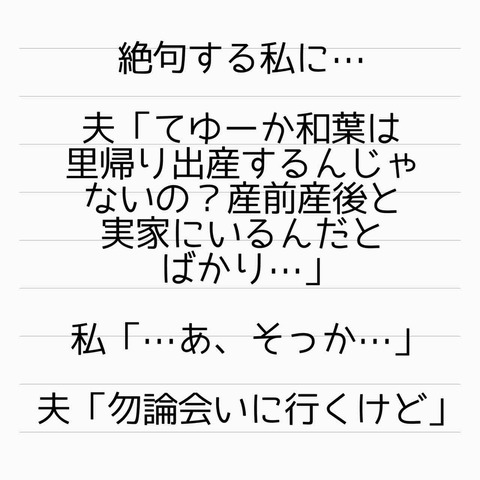 絶句する私に…
夫「てゆーか和葉は
里帰り出産するんじゃ
ないの？産前産後と
実家にいるんだと
ばかり…」
私「…あ、そっか…」
夫「勿論会いに行くけど」